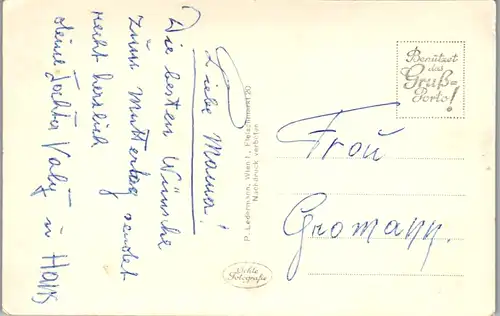 Liebe Mama!
Die besten Wünsche
zum Muttertag sendet
recht herzlich
deine Tochter Valy u Hans
P. Ledermann, Wien I., Fleischmarkt 20
Nachdruck verboten
Benützet
das
Gruß-
Porto!
Frau
Gromann.
Echte
Fotografie